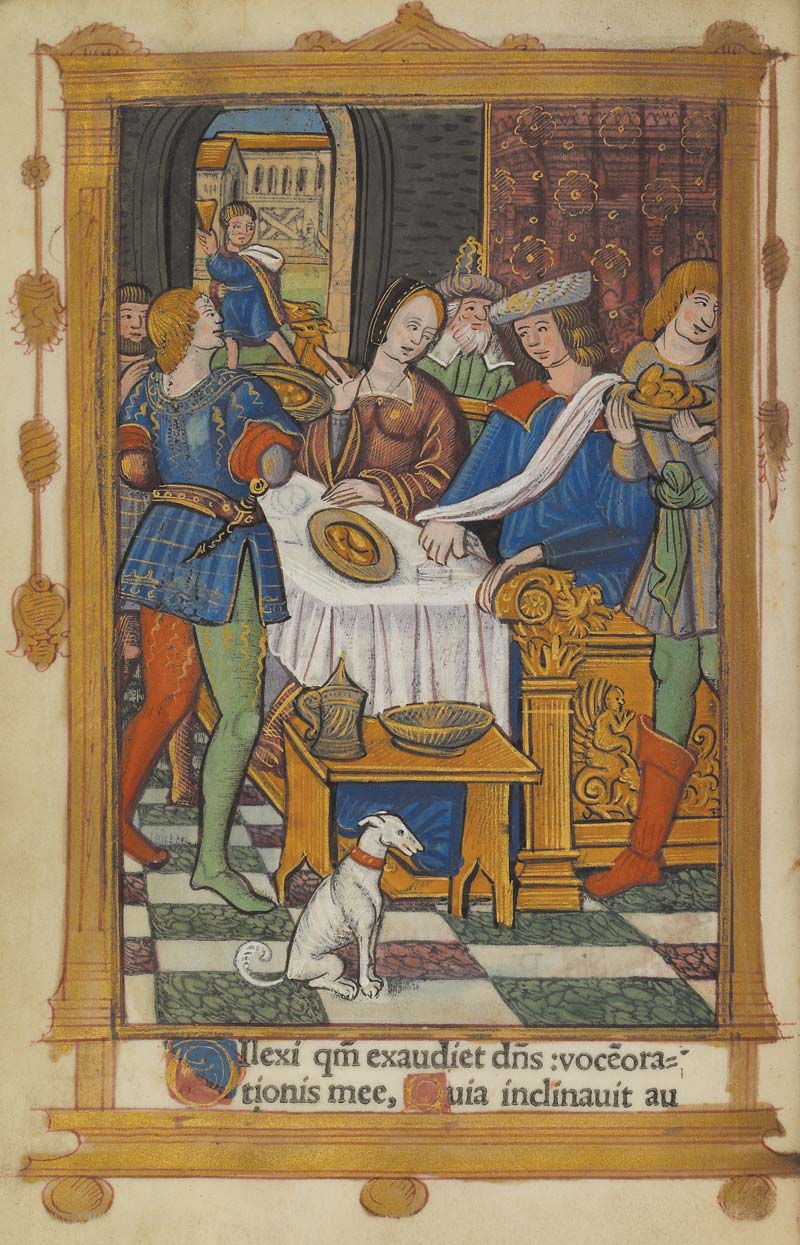 DIlexi qm̄ exaudiet dn̄s :vocē ora=
tionis mee, Quia inclinauit au